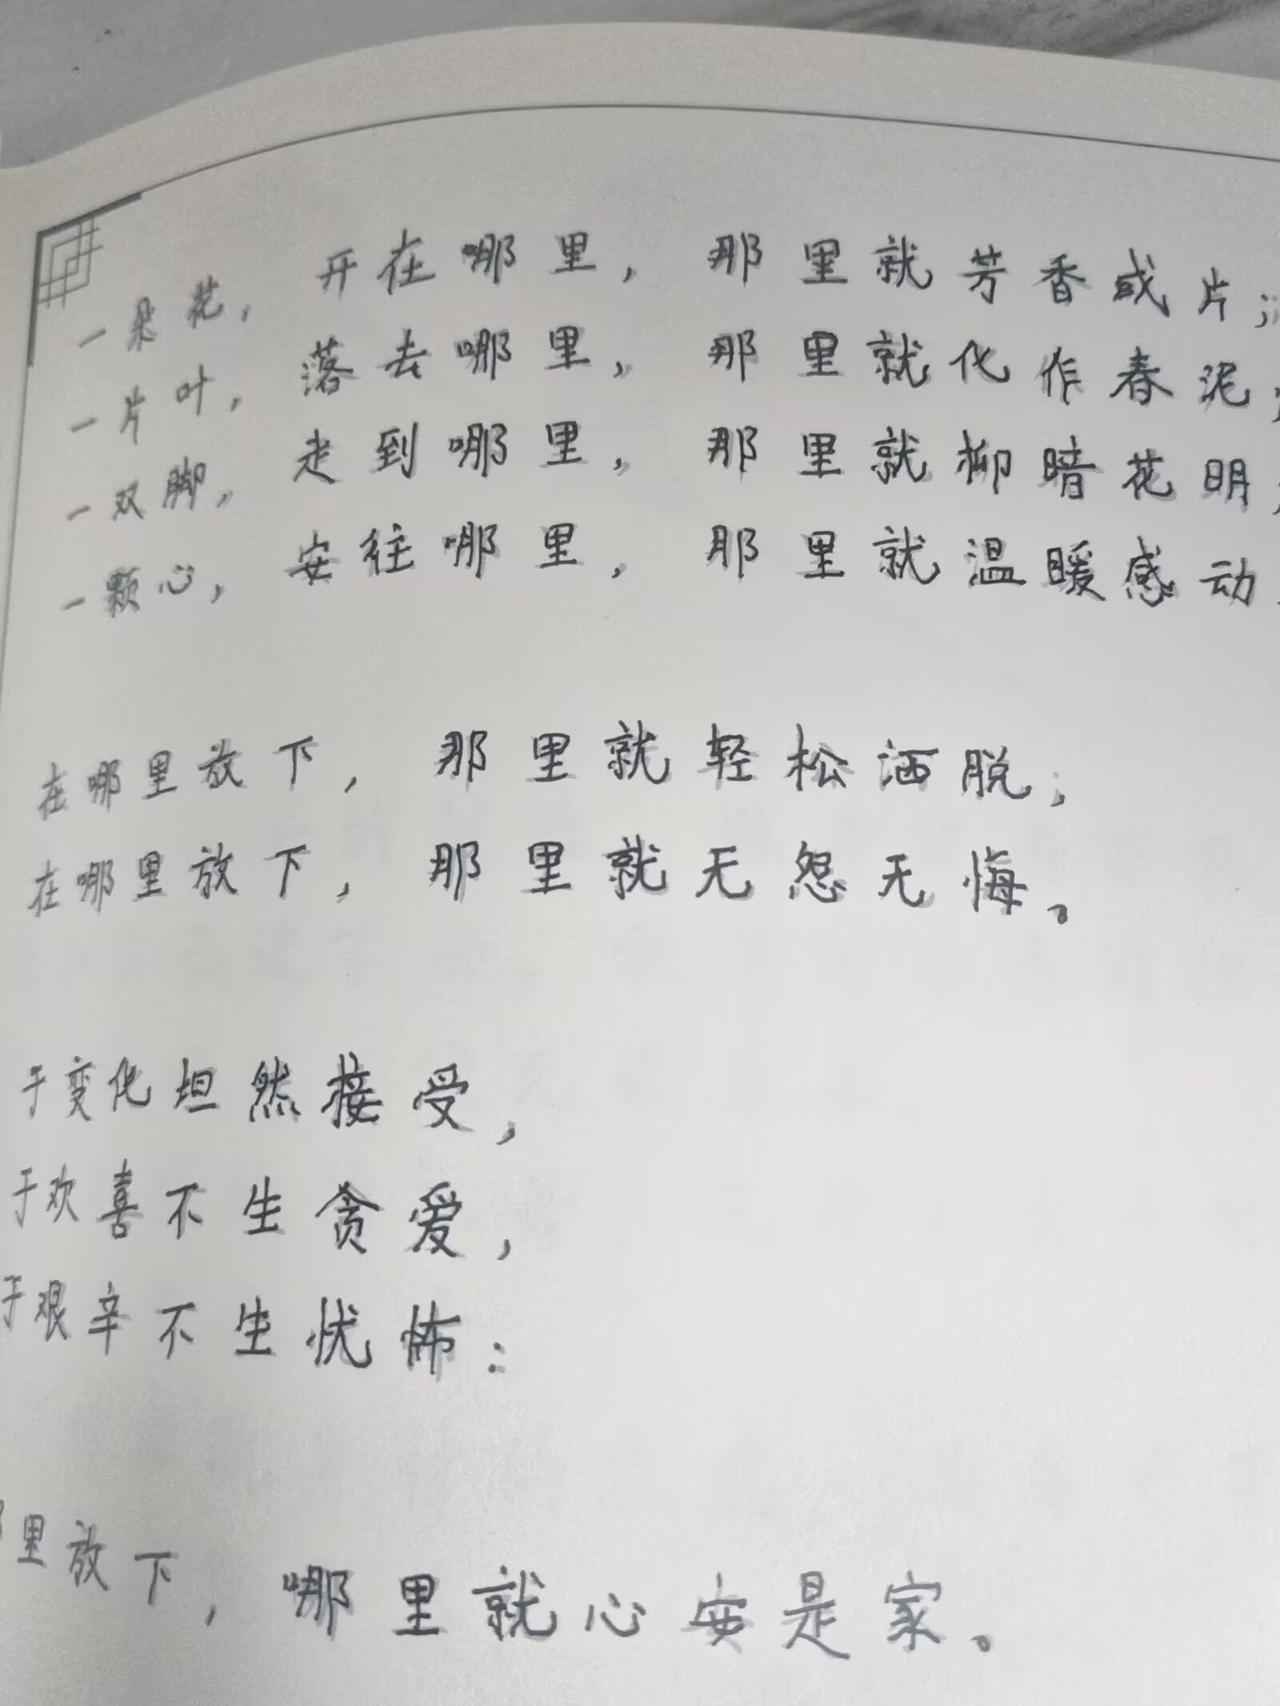 一朵花，开在哪里，那里就芳香成片；
一片叶，落去哪里，那里就化作春泥；
一双脚，走到哪里，那里就柳暗花明；
一颗心，安住哪里，那里就温暖感动
在哪里放下，那里就轻松洒脱；
在哪里放下，那里就无怨无悔。
于变化坦然接受，
于欢喜不生贪爱，
于艰辛不生忧怖：
里放下，哪里就心安是家。